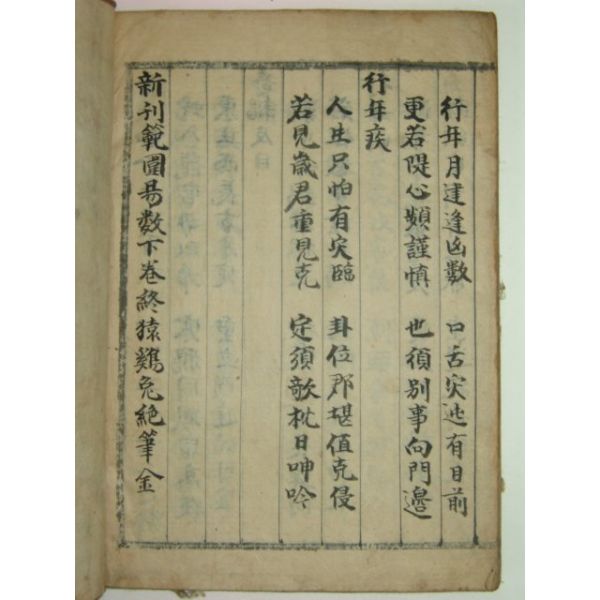 行年月建逢凶數 口舌灾迍有日前
更若隄心頻謹慎 也須別事向門邊
行年疾
人生只怕有灾臨 卦位郡堪值克侵
若見歲君重見克 定須欹枕日呻吟
新刊範圍易数下卷終猿鷄兔絶筆金